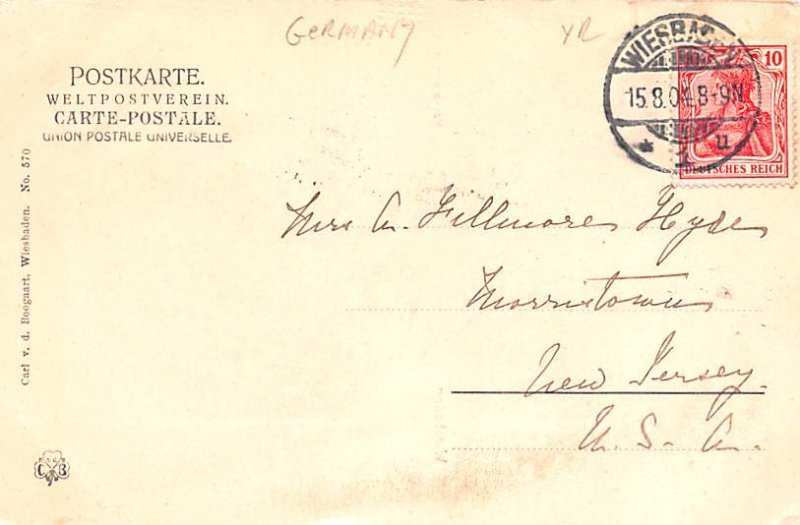 GERMANY
POSTKARTE.
WELTPOSTVEREIN.
CARTE-POSTALE.
UNION POSTALE UNIVERSELLE.
WIESBADEN
15.8.04. 8-9N.
* 1 u
10
DEUTSCHES REICH
Mrs A. Fillmore Hyde
Morristown
New Jersey.
U. S. A.
Carl v. d. Boogaart, Wiesbaden. No. 570
C B